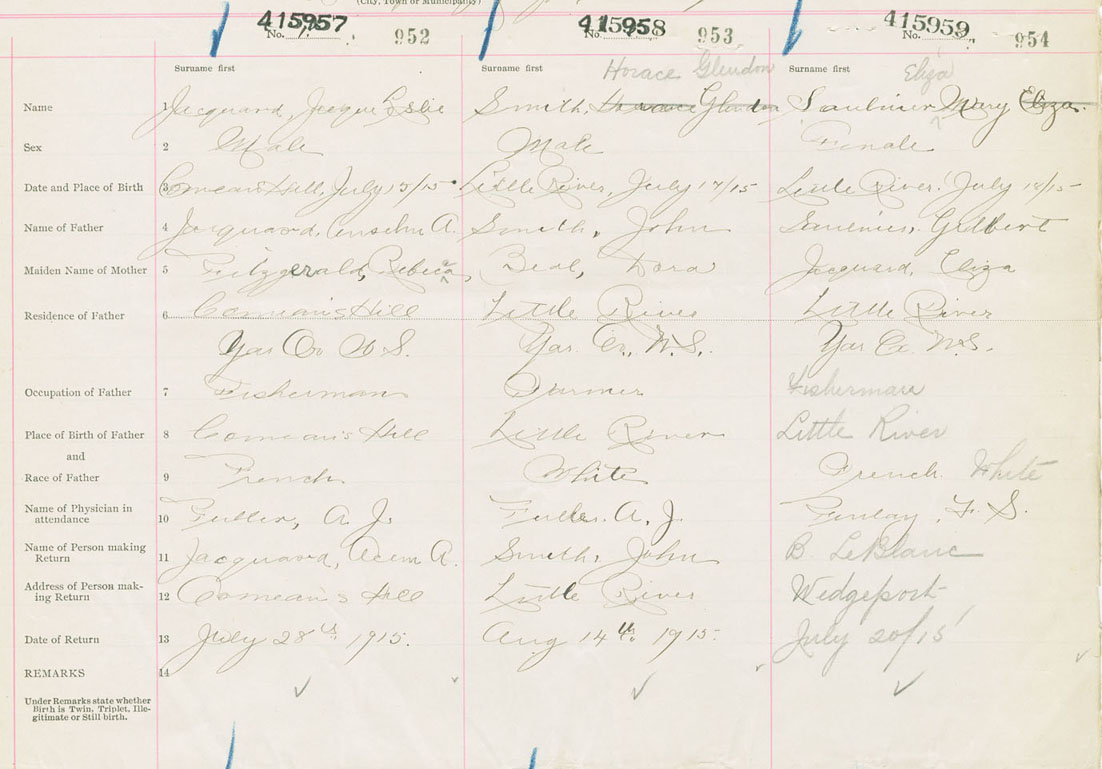 (City, Town or Municipality)
415957 415958 415959
No. 952 No. 953 No. 954
Surname first Surname first Surname first
Horace Glendon Eliza
Name 1 Jacquard, Jacque Leslie Smith, Horace Glendon Saulnier Mary Eliza.
Sex 2 Male Male Female
Date and Place of Birth 3 Comeau's Hill, July 15/15 Little River, July 17/15 Little River, July 18/15
Name of Father 4 Jacquard, Anselm A. Smith, John Gilbert
Maiden Name of Mother 5 Fitzgerald, Rebeca, Beal, Dora Jacquard, Eliza
Residence of Father 6 Comeau's Hill Little River Little River
Yar Co N.S. Yar. Co., N.S., Yar Co N.S.
Occupation of Father 7 Fisherman Farmer Fisherman
Place of Birth of Father 8 Comeau's Hill Little River Little River
and
Race of Father 9 French White French White
Name of Physician in
attendance 10 Fuller, A. J. Fuller. A, J. F. S.
Name of Person making
Return 11 Jacquard, A. Smith, John B. LeBlanc
Address of Person mak-
ing Return 12 Comeau's Hill Little River Wedgeport
Date of Return 13 July 28th, 1915. Aug 14th, 1915. July 20/15
REMARKS 14
Under Remarks state whether
Birth is Twin, Triplet, Ille-
gitimate or Still birth.